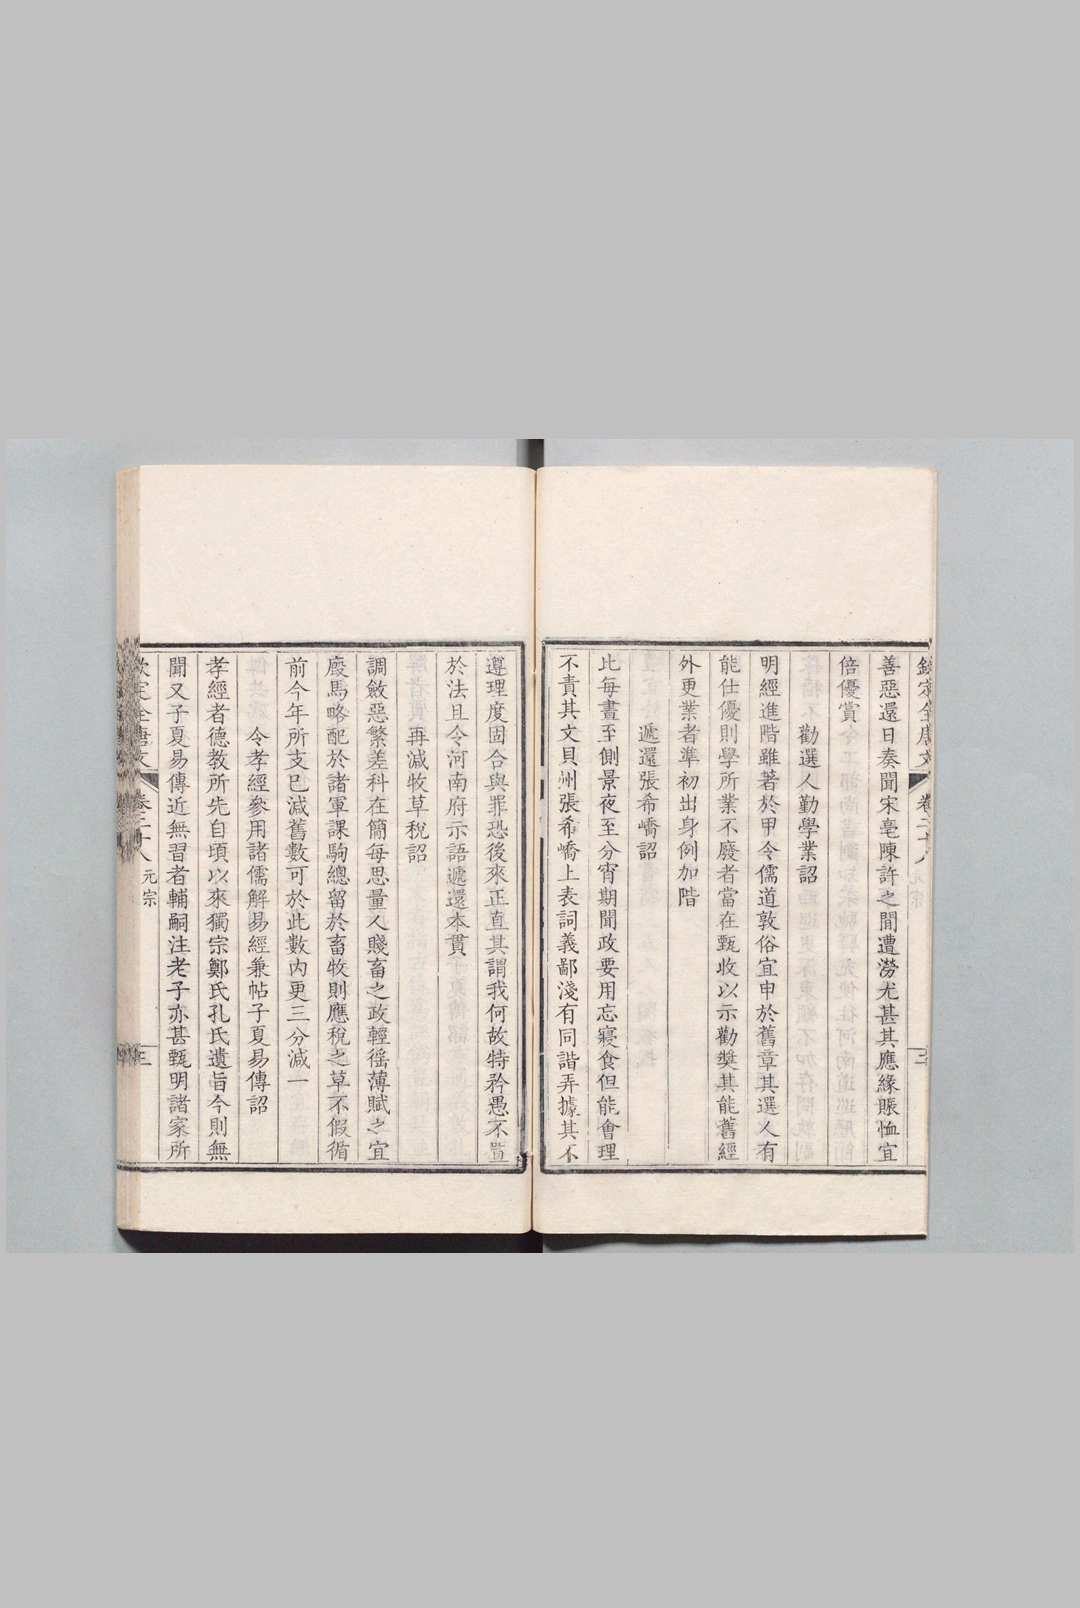 善惡還日奏聞宋亳陳許之間遭澇尤甚其應緣賑恤宜
倍優賞
勸選人勤學業詔
明經進階雖著於甲令儒道敦俗宜申於舊章其選人有
能仕優則學所業不廢者當在甄收以示勸奬其能舊經
外更業者準初出身例加階
遞還張希嶠詔
比每晝至側景夜至分宵期聞政要用忘寢食但能會理
不責其文貝州張希嶠上表詞義鄙淺有同諧弄據其不
遵理度固合與罪恐後來正直其謂我何故特矜愚不置
於法且令河南府示語遞還本貫
再減牧草稅詔
調斂惡繁差科在簡每思量入賤畜之政輕徭薄賦之宜
廄馬略配於諸軍課駒總留於畜牧則應稅之草不假循
前今年所支已減舊數可於此數內更三分減一
令孝經參用諸儒解易經兼帖子夏易傳詔
孝經者德教所先自頃以來獨宗鄭氏孔氏遺旨今則無
聞又子夏易傳近無習者輔嗣注老子亦甚甄明諸家所
欽定全唐文
卷二十八
元宗
三